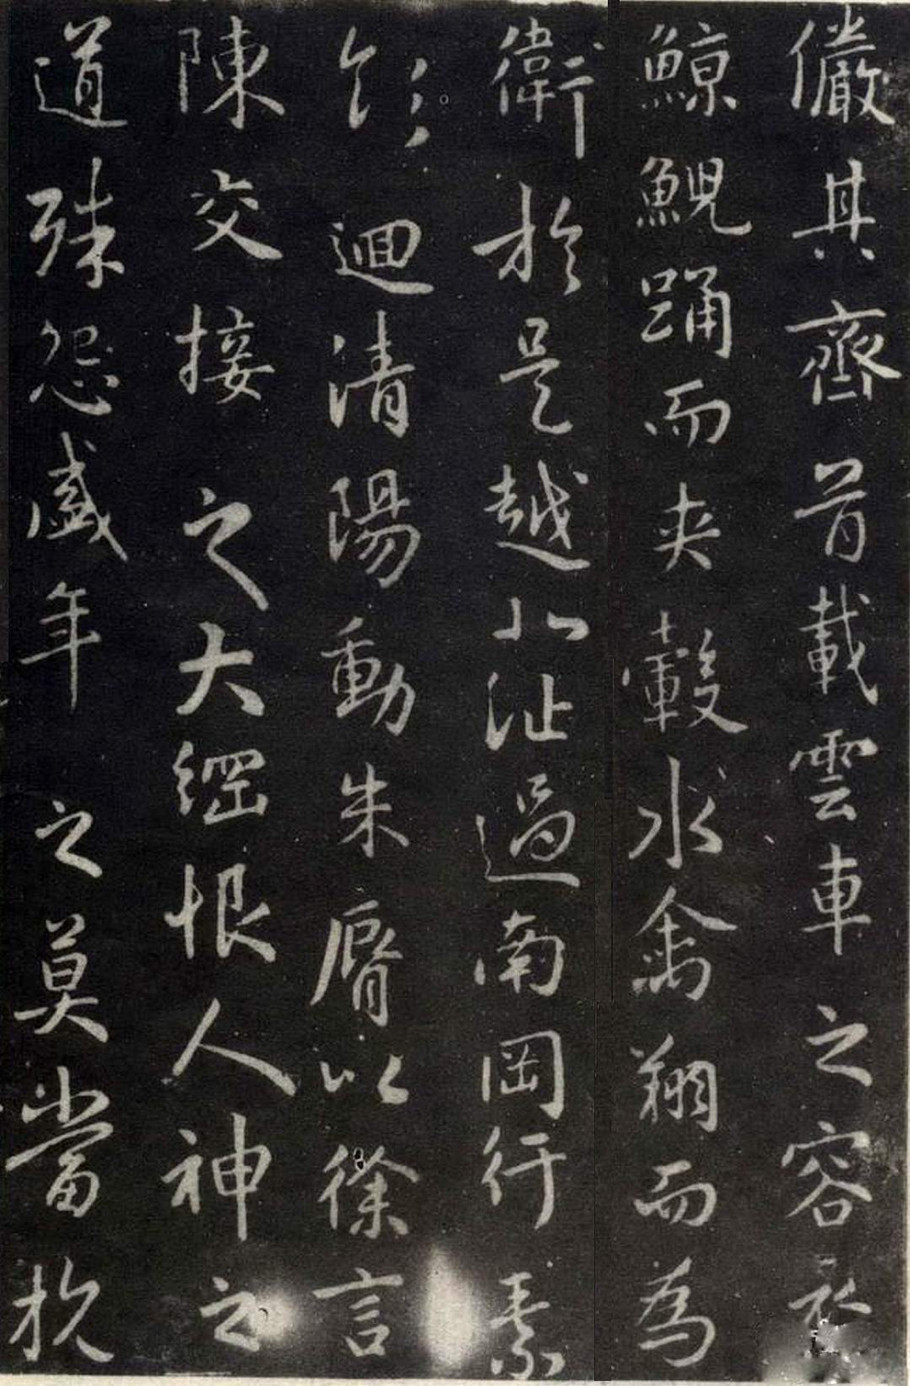 儼其齊首載雲車之容
鯨鯢踊而夾轂水禽翔而為
衛於是越北沚過南岡紆素
領迴清陽動朱脣以徐言
陳交接之大綱恨人神之
道殊怨盛年之莫當抗